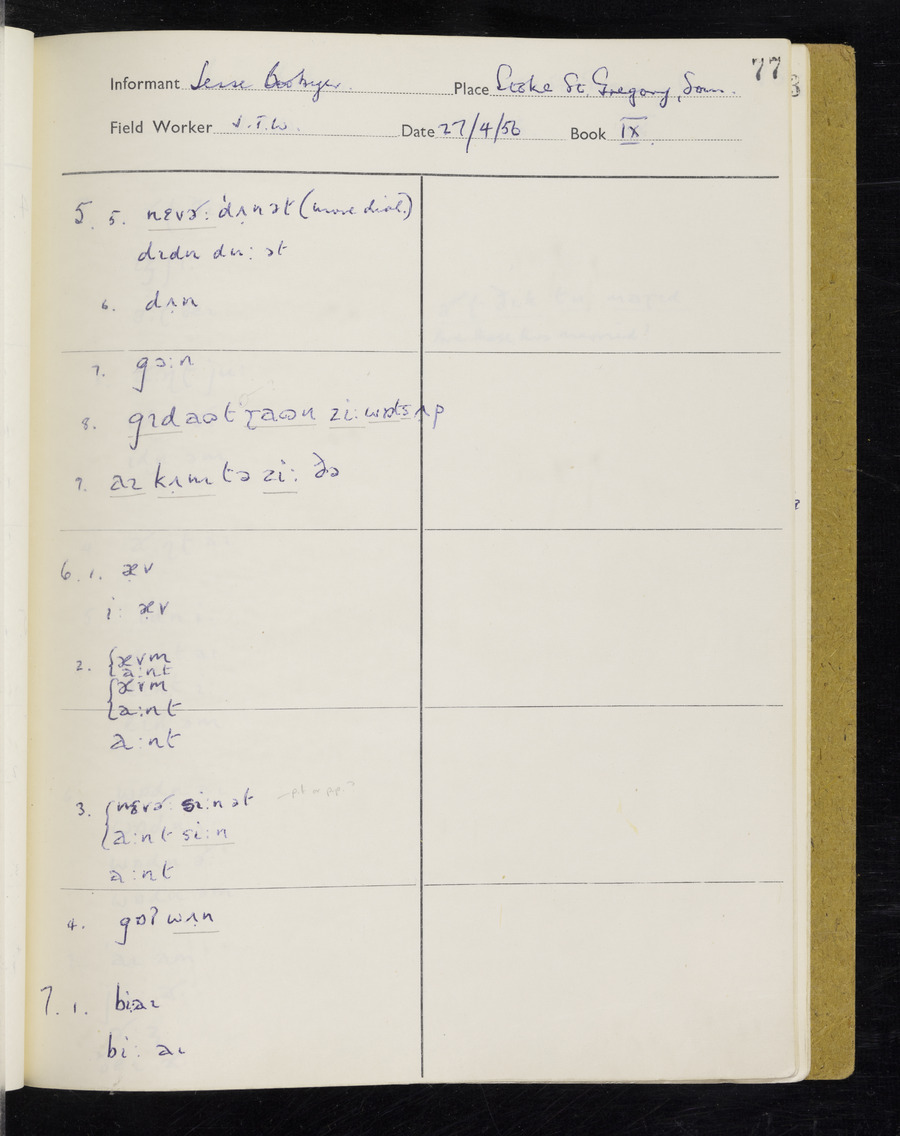 77
Informant Jesse
Place Stoke St. Gregory, Som.
Field Worker J.T.W.
Date 27/4/56
Book IX
5. 5. nɛvɚ: dʌnət (more dial.)
dɪdn du: ət
6. dʌn
7. gɔ:n
8. gɪd aʊt ɽaʊn zi: wɒts ʌp
9. aɪ kʌm tə zi: ðə
6. 1. æv
i: æv
2. {ævm
{a:nt
{ævm
{a:nt
a:nt
3. {nɛvɚ: si:n ət
{a:nt si:n
a:nt
4. gɒʔ wʌn
7. 1. biaɪ
bi: aɪ